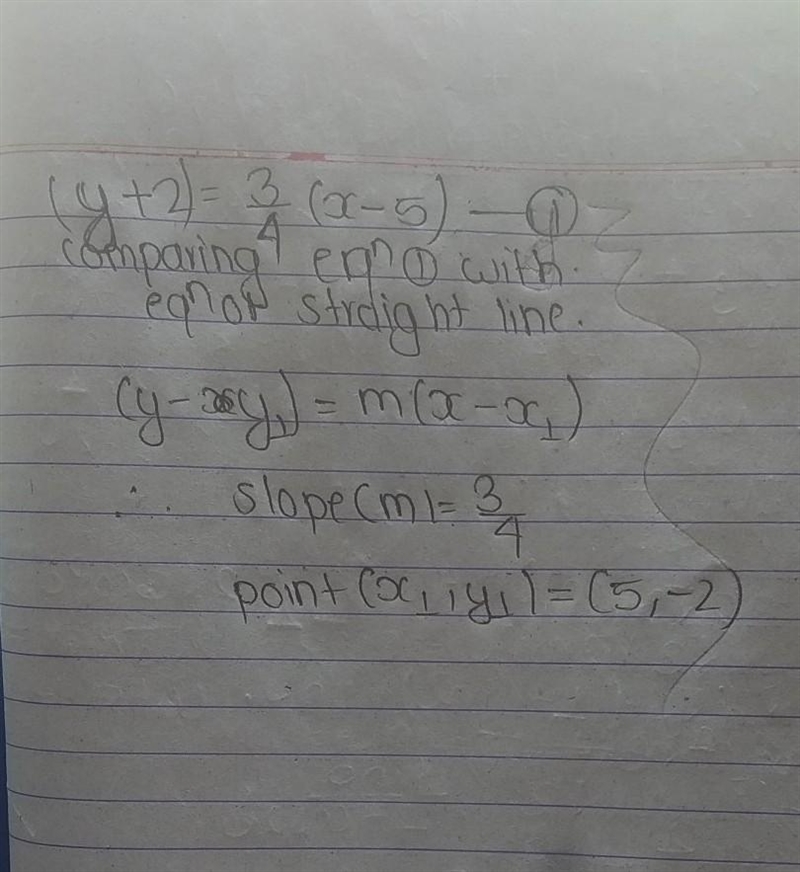 (y+2) = 3/4 (x-5) — ①
comparing eqⁿ ① with
eqⁿ of straight line.
(y - y₁) = m(x - x₁)
∴ slope(m) = 3/4
point (x₁, y₁) = (5, -2)